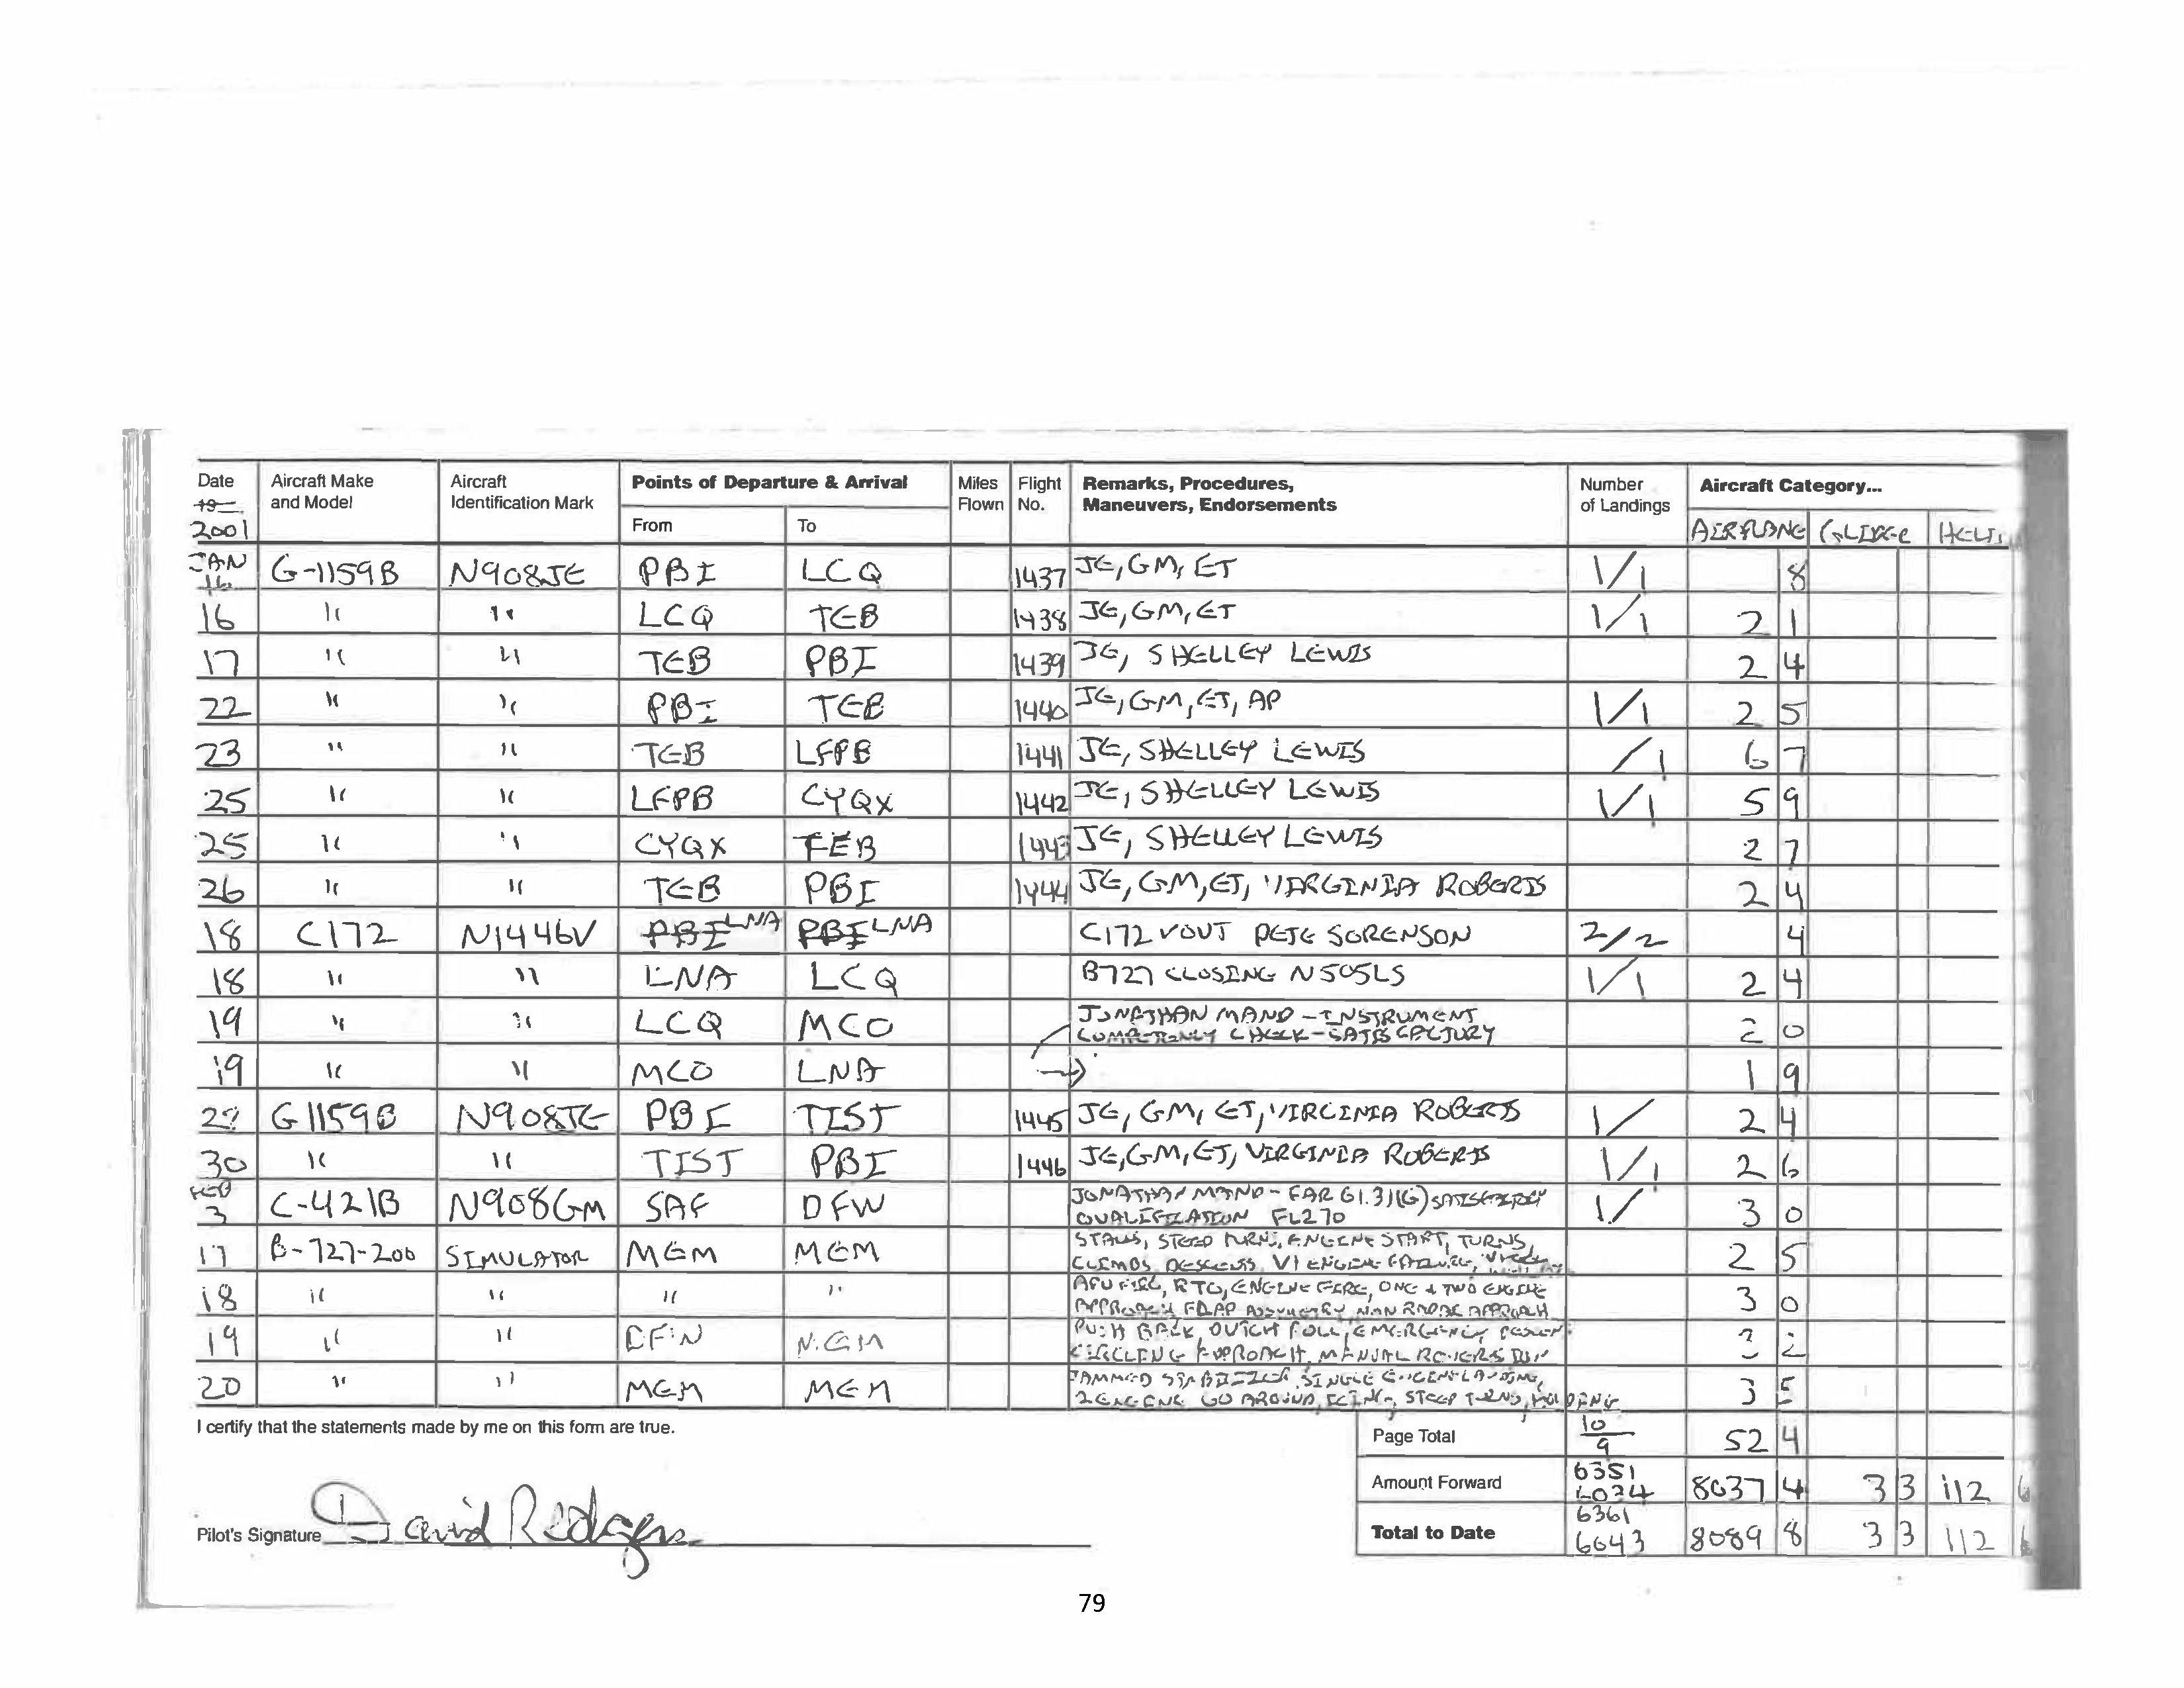 Date Aircraft Make and Model Aircraft Identification Mark Points of Departure & Arrival Miles Flown Flight No. Remarks, Procedures, Maneuvers, Endorsements Number of Landings Aircraft Category...
19
2001 From To AIRPLANE GLIDER HELI
JAN 16 G-1159B N908JE PBI LCQ 1437 JE, GM, ET 1/1 8
16 " " LCQ TEB 1438 JE, GM, ET 1/1 2 1
17 " " TEB PBI 1439 JE, SHELLEY LEWIS 2 4
22 " " PBI TEB 1440 JE, GM, ET, AP 1/1 2 5
23 " " TEB LFPB 1441 JE, SHELLEY LEWIS /1 6 7
25 " " LFPB CYQX 1442 JE, SHELLEY LEWIS 1/1 5 9
25 " " CYQX TEB 1443 JE, SHELLEY LEWIS 2 7
26 " " TEB PBI 1444 JE, GM, ET, VIRGINIA ROBERTS 2 4
18 C172 N1446V PBI LNA PBI LNA C172 VOUT PETE SORENSON 2/2 4
18 " " LNA LCQ B727 CLOSING N505LS 1/1 2 4
19 " " LCQ MCO JONATHAN MANO - INSTRUMENT
COMPETENCY CHECK - SATISFACTORY 2 0
19 " " MCO LNA → 1 9
G1159B N908JE PBI TIST 1445 JE, GM, ET, VIRGINIA ROBERTS 1/ 2 4
30 " " TIST PBI 1446 JE, GM, ET, VIRGINIA ROBERTS 1/1 2 6
FEB 3 C-421B N908GM SAF DFW JONATHAN MANO - FAR 61.31(G)
QUALIFICATION FL270 1/ 3 0
17 B-727-200 SIMULATOR MEM MEM STALLS, STEEP TURNS, ENGINE START, TURNS,
CLIMBS, DESCENTS, V1 ENGINE FAILURE, 2 5
18 " " " " RTO, ENGINE FIRE, ONE & TWO ENGINE
APPROACH, FLAP ASYMMETRY, NON RADAR APPROACH 3 0
19 " " PUSH BACK, DUTCH ROLL, EMERGENCY DESCENT
CIRCLING APPROACH, MANUAL 2
20 " " MEM MEM JAMMED STABILIZER, SINGLE ENGINE LANDING,
2 ENGINE GO AROUND, ICING, STEEP TURNS, HOLDING 3 5
I certify that the statements made by me on this form are true.
Page Total 10/9 52 4
Amount Forward 6351 8037 4 3 3 112 6
Total to Date 6361 8089 8 3 3 112 6
Pilot's Signature David Rodgers
79